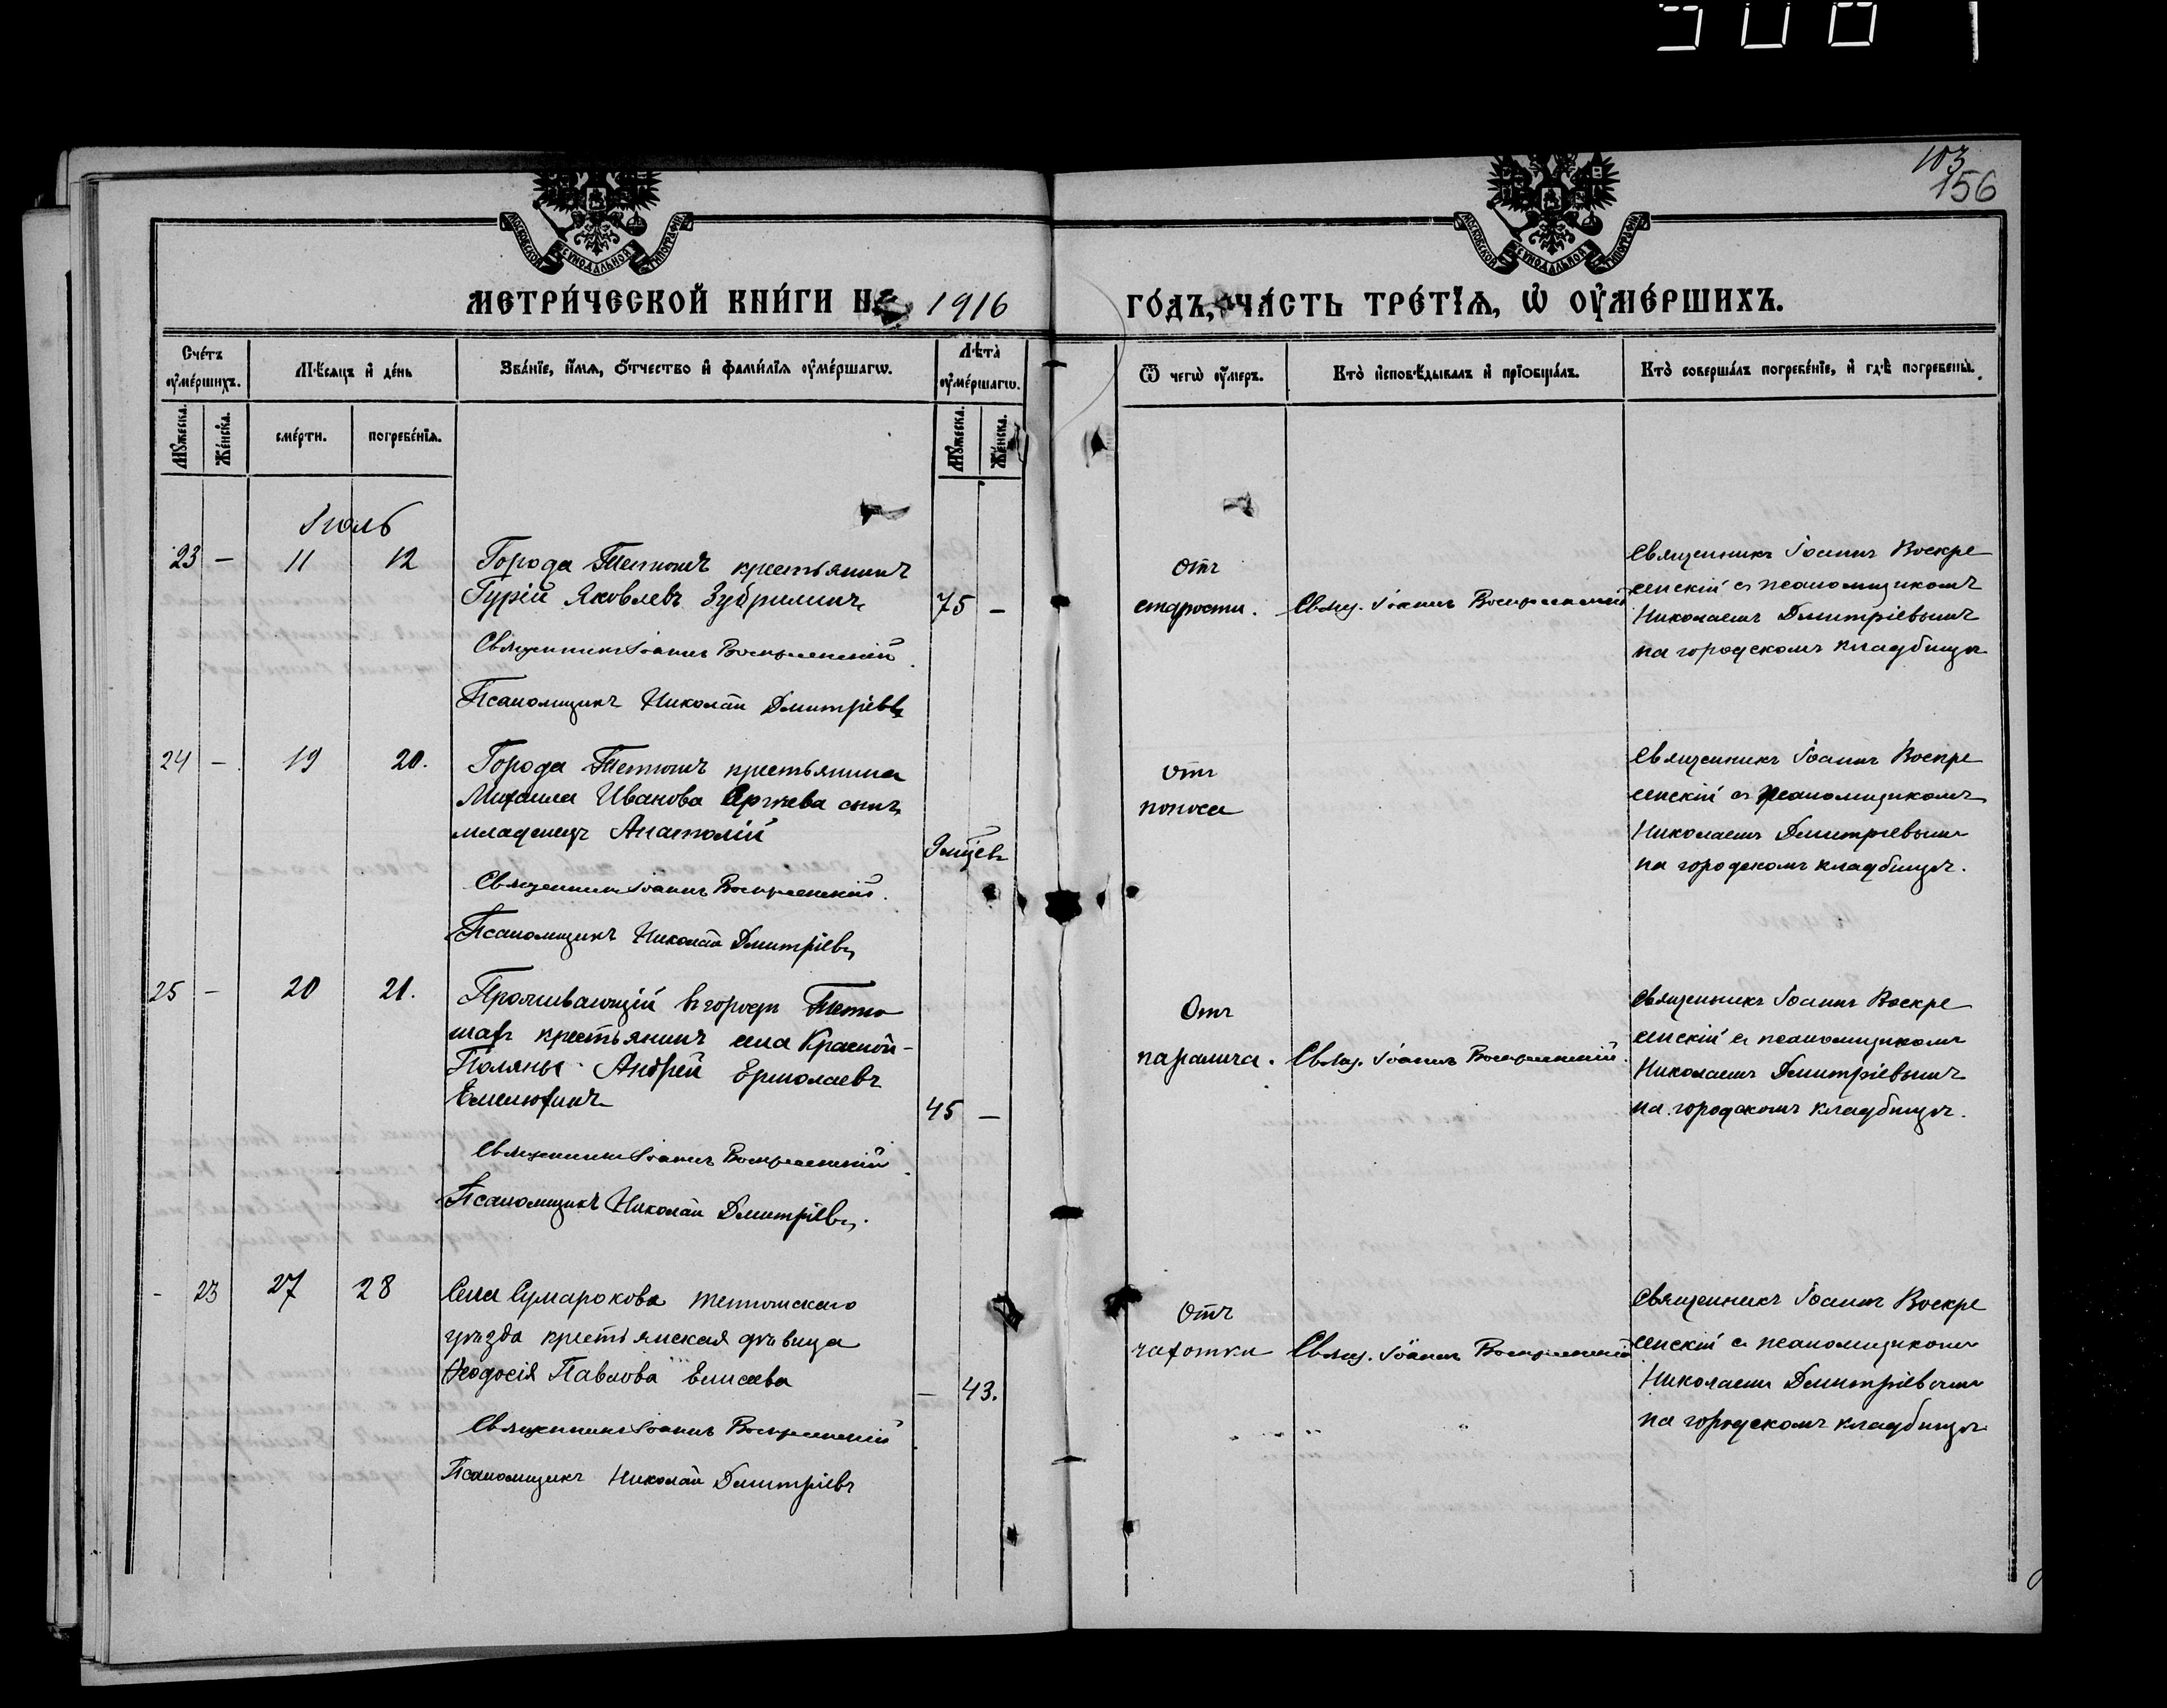 103
156
МОСКОВСКОЙ СѴНОДАЛЬНОЙ ТИПОГРАФІИ
МОСКОВСКОЙ СѴНОДАЛЬНОЙ ТИПОГРАФІИ
МЕТРИ́ЧЕСКОЙ КНИ́ГИ НА 1916 ГО́ДЪ, ЧА́СТЬ ТРЕ́ТЇѦ, Ѡ҆ ОУ҆МЕ́РШИХЪ.
Сче́тъ оу҆ме́ршихъ.
Мѣ́сяцъ и҆ де́нь
Зва́нїе, и҆́мѧ, ѻ҆́тчество и҆ фами́лїѧ оу҆ме́ршагѡ.
Лѣта̀ оу҆ме́ршагѡ.
Ѿ чегѡ̀ оу҆́меръ.
Кто̀ и҆сповѣ́дывалъ и҆ прїѡбща́лъ.
Кто̀ соверша́лъ погребе́нїе, и҆ гдѣ̀ погребены̀.
Мꙋ́жеска.
Же́нска.
сме́рти.
погребе́нїѧ.
Мꙋ́жеска.
Же́нска.
Іюль
23 – 11 12
Города Тетюшъ крестьянинъ
Гурій Яковлевъ Зубрилинъ
75 –
Священникъ Іоаннъ Воскресенскій.
Псаломщикъ Николай Дмитріевъ
Отъ
старости.
Свящ. Іоаннъ Воскресенскій
Священникъ Іоаннъ Воскре
сенскій съ псаломщикомъ
Николаемъ Дмитріевымъ
на городскомъ кладбищѣ
24 – 19 20.
Города Тетюшъ крестьянина
Михаила Иванова сынъ
младенецъ Анатолій
9 мѣсяцев
Священникъ Іоаннъ Воскресенскій.
Псаломщикъ Николай Дмитріевъ
Отъ
поноса
Священникъ Іоаннъ Воскре
сенскій съ псаломщикомъ
Николаемъ Дмитріевымъ
на городскомъ кладбищѣ.
25 – 20 21.
Проживающій въ городѣ Тетю
шахъ крестьянинъ села Красной-
Поляны Андрей Ермолаевъ
Емелюхинъ
45 –
Священникъ Іоаннъ Воскресенскій.
Псаломщикъ Николай Дмитріевъ.
Отъ
паралича.
Свящ. Іоаннъ Воскресенскій.
Священникъ Іоаннъ Воскре
сенскій съ псаломщикомъ
Николаемъ Дмитріевымъ
на городскомъ кладбищѣ.
– 23 27 28
Села Сумарокова тетюшскаго
уѣзда крестьянская дѣвица
Ѳеодосія Павлова Елисеева
– 43.
Священникъ Іоаннъ Воскресенскій
Псаломщикъ Николай Дмитріевъ
Отъ
чахотки
Свящ. Іоаннъ Воскресенскій
Священникъ Іоаннъ Воскре
сенскій съ псаломщикомъ
Николаемъ Дмитріевымъ
на городскомъ кладбищѣ